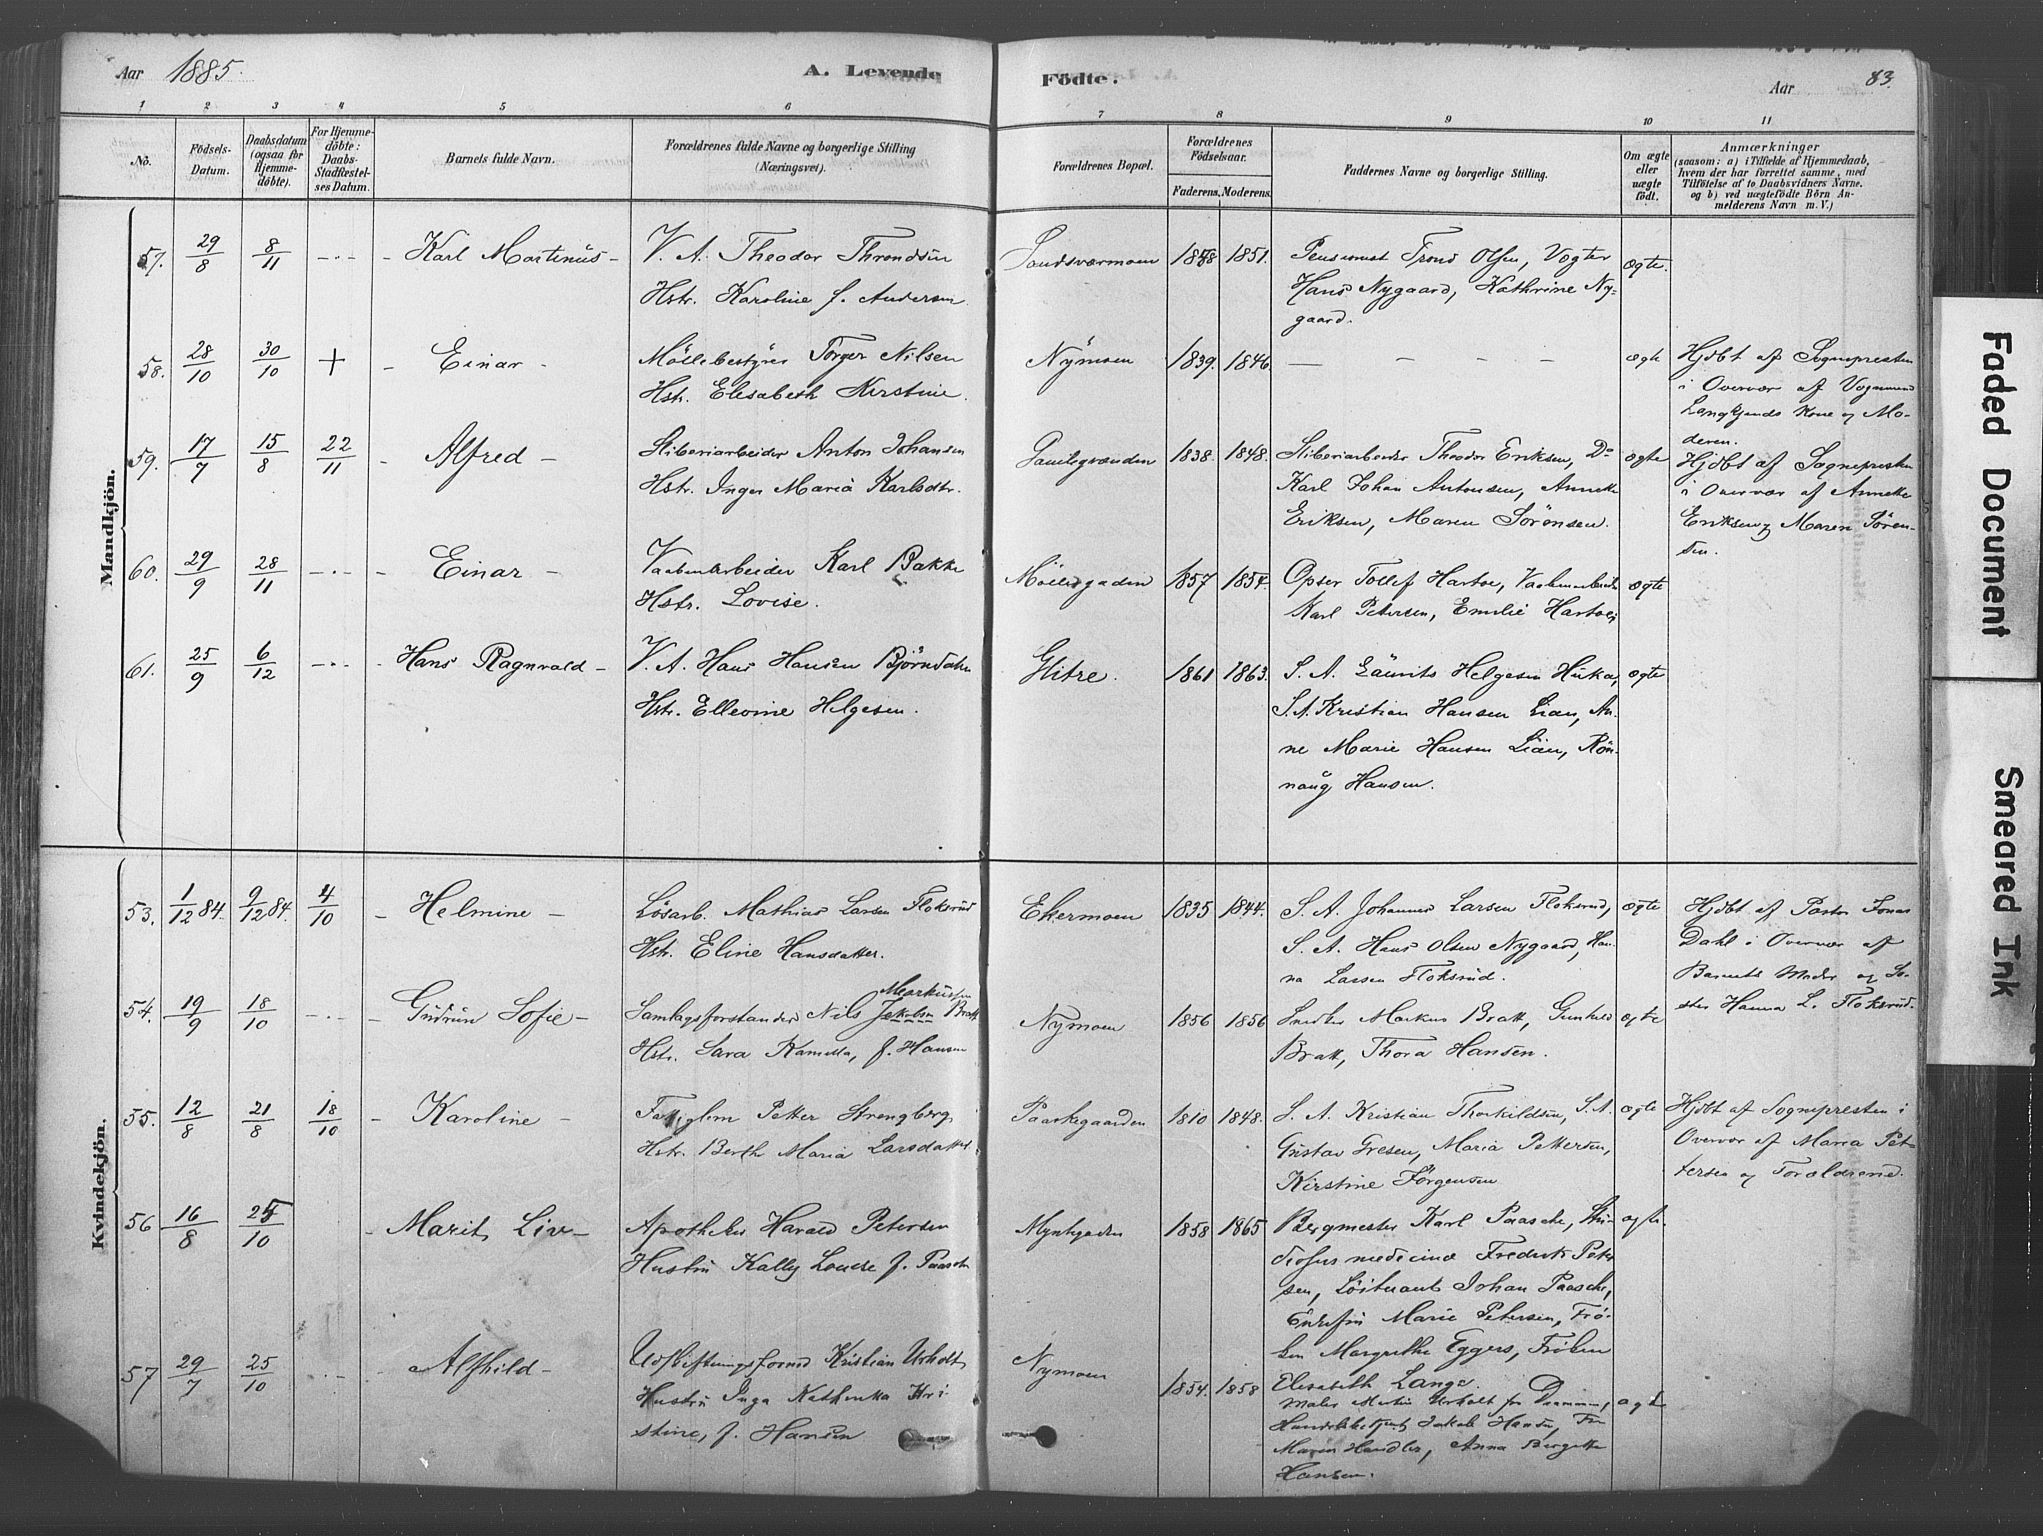 Aar 1885.
A. Levende
Födte.
Aar
83.
1 2 3 4 5 6 7 8 9 10 11
No.
Födsels-Datum.
Daabsdatum (ogsaa for Hjemme-döbte).
For Hjemme-döbte: Daabs-Stadfæstel-ses Datum.
Barnets fulde Navn.
Forældrenes fulde Navne og borgerlige Stilling (Næringsvei).
Forældrenes Bopæl.
Forældrenes Födselsaar.
Faderens. Moderens.
Faddernes Navne og borgerlige Stilling.
Om ægte eller uægte födt.
Anmærkninger
(saasom: a) i Tilfælde af Hjemmedaab,
hvem der har forrettet samme, med
Tilföielse af to Daabsvidners Navne.
og b) ved uægtefödte Börn An-
melderens Navn m. V.)
Mandkjön.
57. 29/8 8/11 Karl Martinus V. A. Theodor Throndsen 1851. Pensionist Trond Olsen, Vogter ægte.
Hstr. Karoline f. Andersen Hans Nygaard, Kathrine Ny-
gaard.
58. 28/10 30/10 + Einar Möllebestyrer Torger Nilsen Nymoen 1839. 1846. ægte Hjdbt af Sognepresten
Hstr. Elisabeth Kirstine. i Overvær af
Kone og Mo-
deren.
59. 17/7 15/8 22/11 Alfred Sliberiarbeider Anton Johansen 1838. 1848. Sliberiarbeider Theodor Eriksen, Do ægte Hjdbt af Sognepresten
Hstr. Inger Maria Karlsdtr. Karl Johan Antonsen, Annette i Overvær af Annette
Eriksen, Maren Sörensen. Eriksen og Maren Sören-
sen.
60. 29/9 28/11 Einar Vaabenarbeider Karl Bakke Möllergaden 1857 1854. Opser Tollef Hartve, Vaabenarbeider ægte
Hstr. Lovise. Karl Petersen, Emilie Hartve
61. 25/9 6/12 Hans Ragnvald V. A. Hans Hansen Björndalen Glitre. 1861 1863. S. A. Laurits Helgesen Huka, ægte
Hstr. Ellevine Helgesen. S. A. Kristian Hansen Lian, An-
ne Marie Hansen Lian, Rön-
naug Hansen.
Kvindekjön.
53. 1/12 84. 9/12 84. 4/10 Helmine Lösarb. Mathias Larsen Floksrud Ekermoen 1835 1844. S. A. Johannes Larsen Floksrud, ægte Hjdbt af Pastor Jonas
Hstr. Eline Hansdatter. S. A. Hans Olsen Nygaard, Han- Dahl i Overvær af
na Larsen Floksrud. Barnets Moder og Sö-
ster Hanna L. Floksrud.
54. 19/9 18/10 Gudrun Sofie Samlagsforstander Nils Jakobsen Markussen Bratt Nymoen 1856 1856 Snedker Markus Bratt, Gunhild ægte
Hstr. Sara Kamilla, f. Hansen Bratt, Thora Hansen.
55. 12/8 21/8 18/10 Karoline Fattiglem Petter Strengberg Paaskegaarden 1810 1848. S. A. Kristian Thorkildsen, S. A. ægte Hjdbt af Sognepresten i
Hstr. Berth Maria Larsdatter Gustav Iresen, Maria Pettersen, Overvær af Maria Pet-
Kirstine Jörgensen tersen og Forældrene.
56 16/8 25/10 Marit Liv Apotheker Harald Petersen Myntgaden 1858 1865 Bergmester Karl Paasche, Stu- ægte.
Hustru Kally Louise f. Paasche diosus medicinæ Fredrik Peter
sen, Löitnant Johan Paasche,
Enkefru Marie Petersen, Frö-
ken Margrethe Eggers, Fröken
Elisabeth Lange.
57 29/7 25/10 Alfhild Udskiftningsformd Kristian Urholdt Nymoen 1854. 1858 Maler Martin Urholt fra Drammen, ægte
Hustru Inga Kathinka Kri- Handelsbetjent Jakob Hansen, Fru
stine, f. Hansen Maren Handler, Anna Bergitte
Hansen.
Faded Document
Smeared Ink